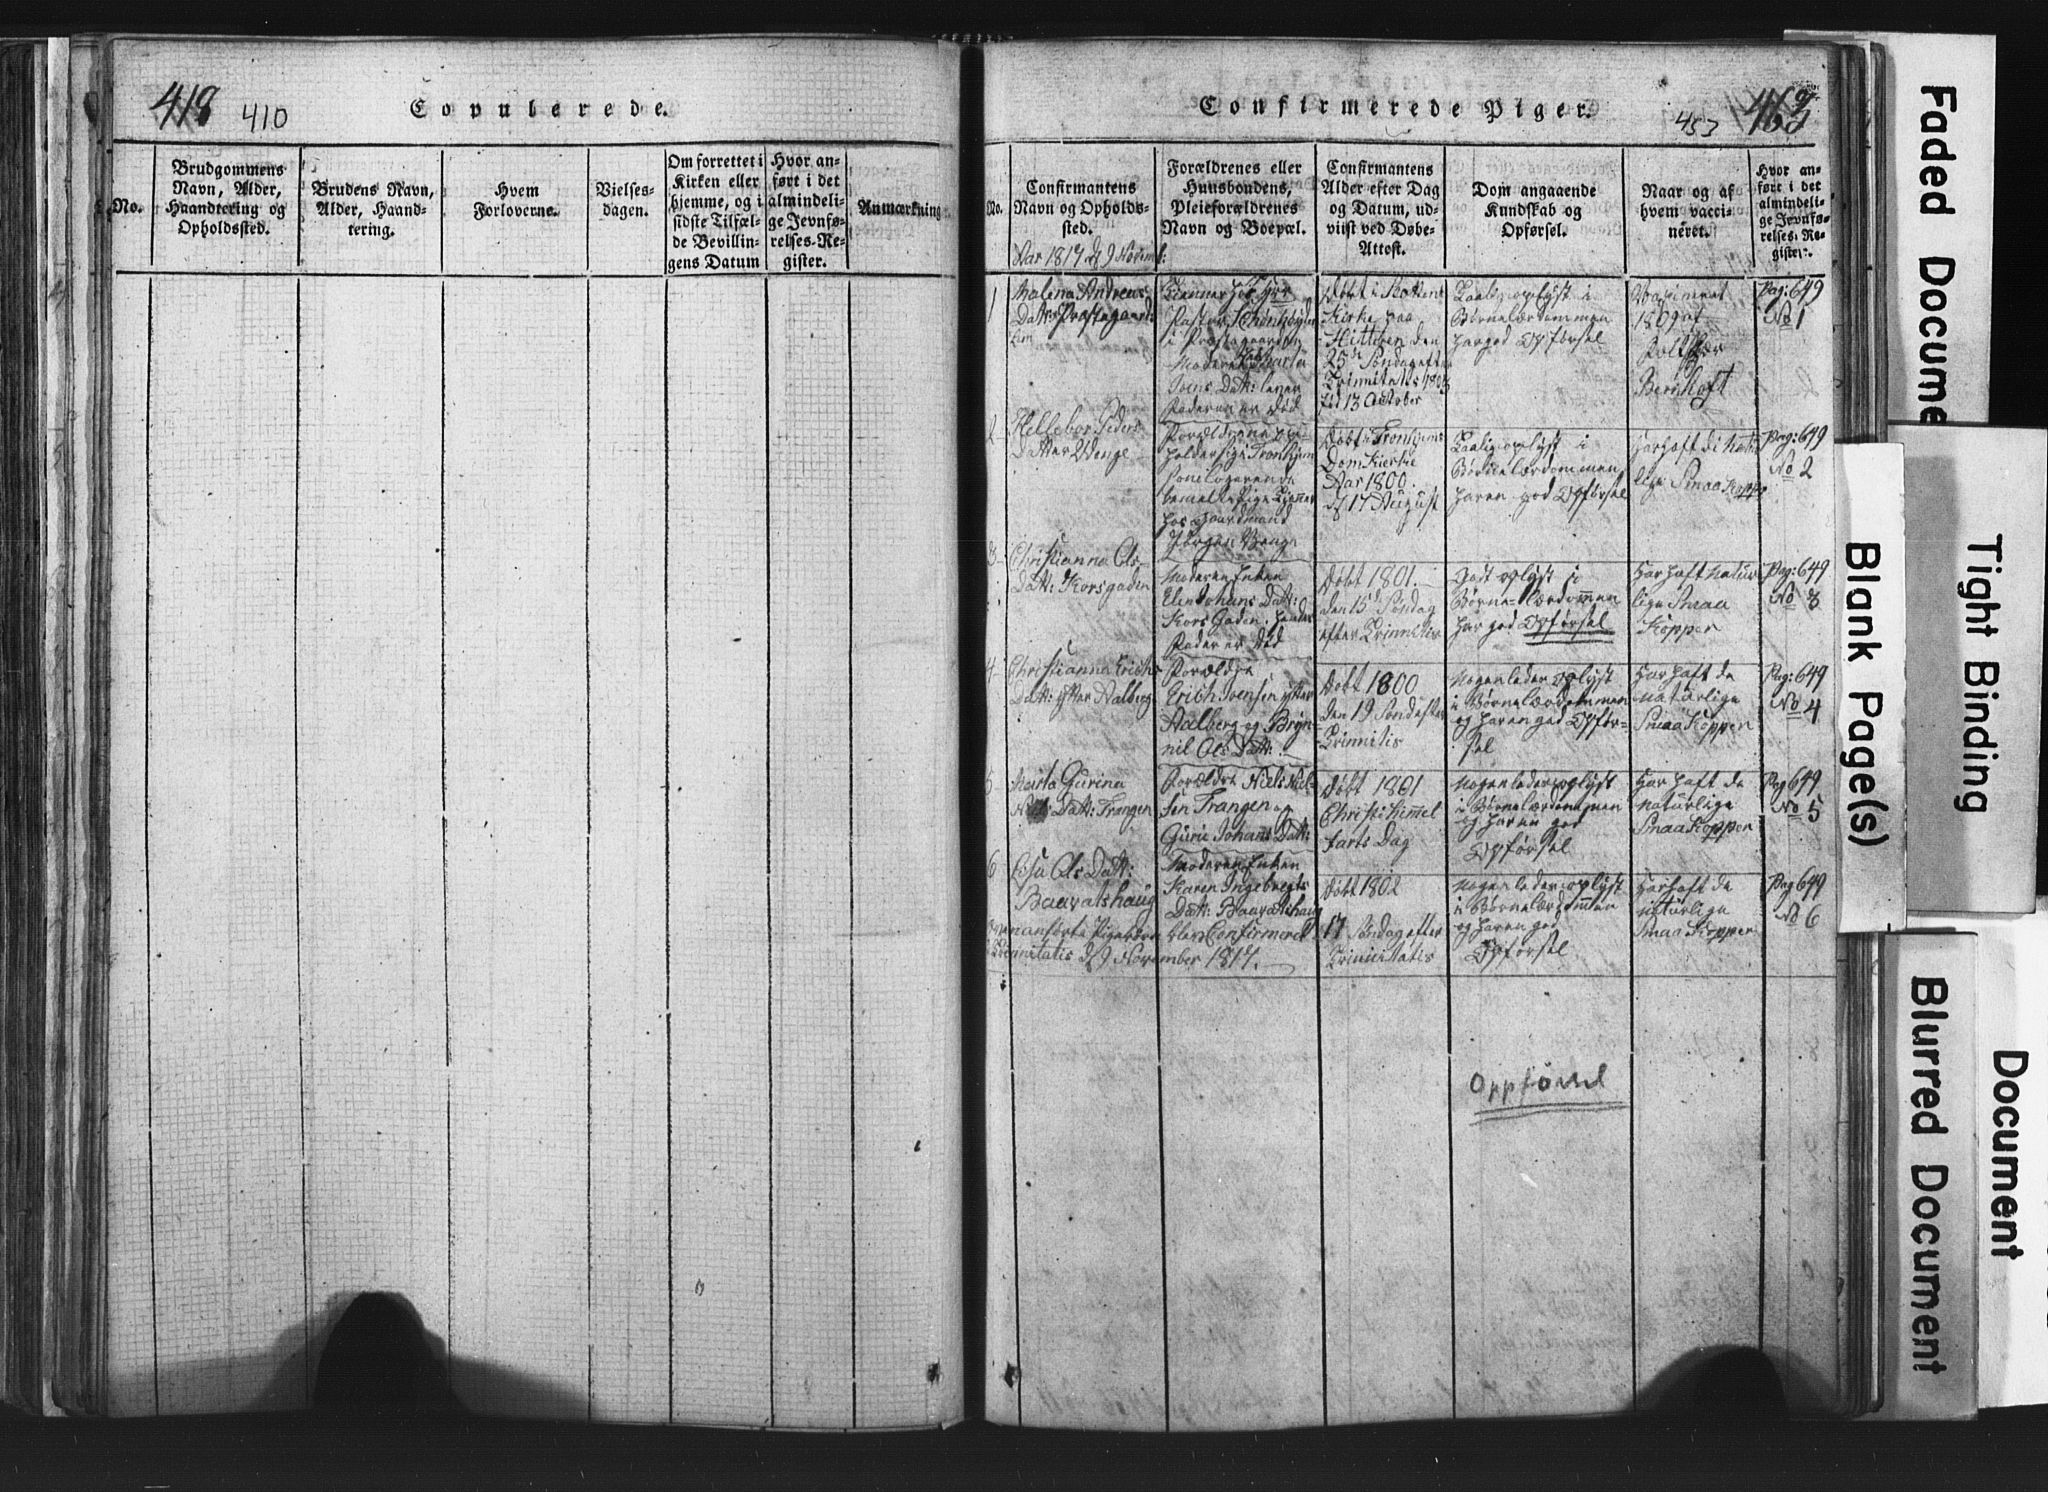 418 410
Copulerede.
No.
Brudgommens
Navn, Alder,
Haandtering og
Opholdssted.
Brudens Navn,
Alder, Haand-
tering.
Hvem
Forloverne.
Vielses-
dagen.
Om forrettet i
Kirken eller
hjemme, og i
sidste Tilfæl-
de Bevillin-
gens Datum
Hvor an-
ført i det
almindeli-
ge Jevnfø-
relses-Re-
gister.
Anmærkning
Confirmerede Piger.
453 463
No.
Confirmantens
Navn og Opholds-
sted.
Aar 1817 d 9 Novemb:
Forældrenes eller
Huusbondens,
Pleieforældrenes
Navn og Boepæl.
Confirmantens
Alder efter Dag
og Datum, ud-
viist ved Døbe-
Attest.
Dom angaaende
Kundskab og
Opførsel.
Naar og af
hvem vacci-
neret.
Hvor an-
ført i det
almindeli-
ge Jevnfø-
relses-Re-
gister.
1
Malena Andreas
Datt: Præstegaard:
Tienner hos Her
Pastor
i Præstegaarden
Moderen Marta
Datt: lever
Faderen er død
Døbt i
Kirke paa
Hitteren den
25de Søndag efter
Trinnitatis
13 October
oplyst i
Børnelærdommen
har god Opførsel
Vaxineret
1809 af
Bernhoft
Pag: 649
No 1
2
Hellebor Peders
Datter Wenge
Forældrene op-
holder sig i Tronhjem
bemelte Pige tienner
hos Gaardmand
Jørgen Venge
Døbt i Tronhjems
Dom Kierke
Aar 1800.
d 17 August
oplyst i
Børnelærdommen
har en god Opførsel
Har haft di natur-
lige Smaa Kopper
Pag: 649
No 2
3
Christianna Ols
Datt: Korsgaden
Moderen Enken
Elen Johans Datt:
Kors Gaden. hendes
Fader er død
Døbt 1801.
den 15de Søndag
efter Trinnitis
Godt oplyst i
Børne-lærdommen
har god Opførsel
Har haft Natur-
lige Smaa
Kopper
Pag: 649
No 3
4
Christianna Erichs
Datt: ytter Aalberg
Forældre
Erich Ivensen ytter
Aalberg og Bryn-
nil Ols Datt:
Døbt 1800
den 19 Sønd efter
Trinnitis
Nogenleder oplyst
i Børnelærdommen
og har en god Opfør-
sel
Har haft de
naturlige
Smaa Kopper
Pag: 649
No 4
5
Marta Gurina
Datt: Trangen
Forældre Niels Niel-
sen Trangen og
Guru Johans Datt:
Døbt 1801
Christi himmel
farts Dag
Nogenleder oplyst
i Børnelærdommen
og har en god
Opførsel
Har haft de
naturlige
Smaa Kopper
Pag 649
No 5
6
Ols Datt:
Baavatshaug
Moderen Enken
Karen Ingebregts
Datt: Baavatshaug
Døbt 1802
17 Søndag efter
Trinitatis
Nogenleder oplyst
i Børnelærdommen
og har en god
Opførsel
Har haft de
naturlige
Smaa Kopper
Pag 649
No 6
anførte Piger
blev Confirmeret
Trinnitatis d 9 November 1817.
Oppførsel
Faded Docume
Tight Binding
Blank Page(s)
Document
Blurred Document